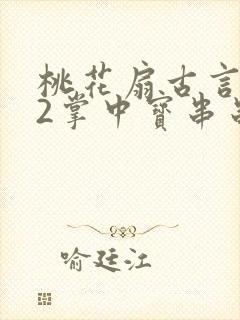 桃花扇古言
2掌中寳串
喻廷江